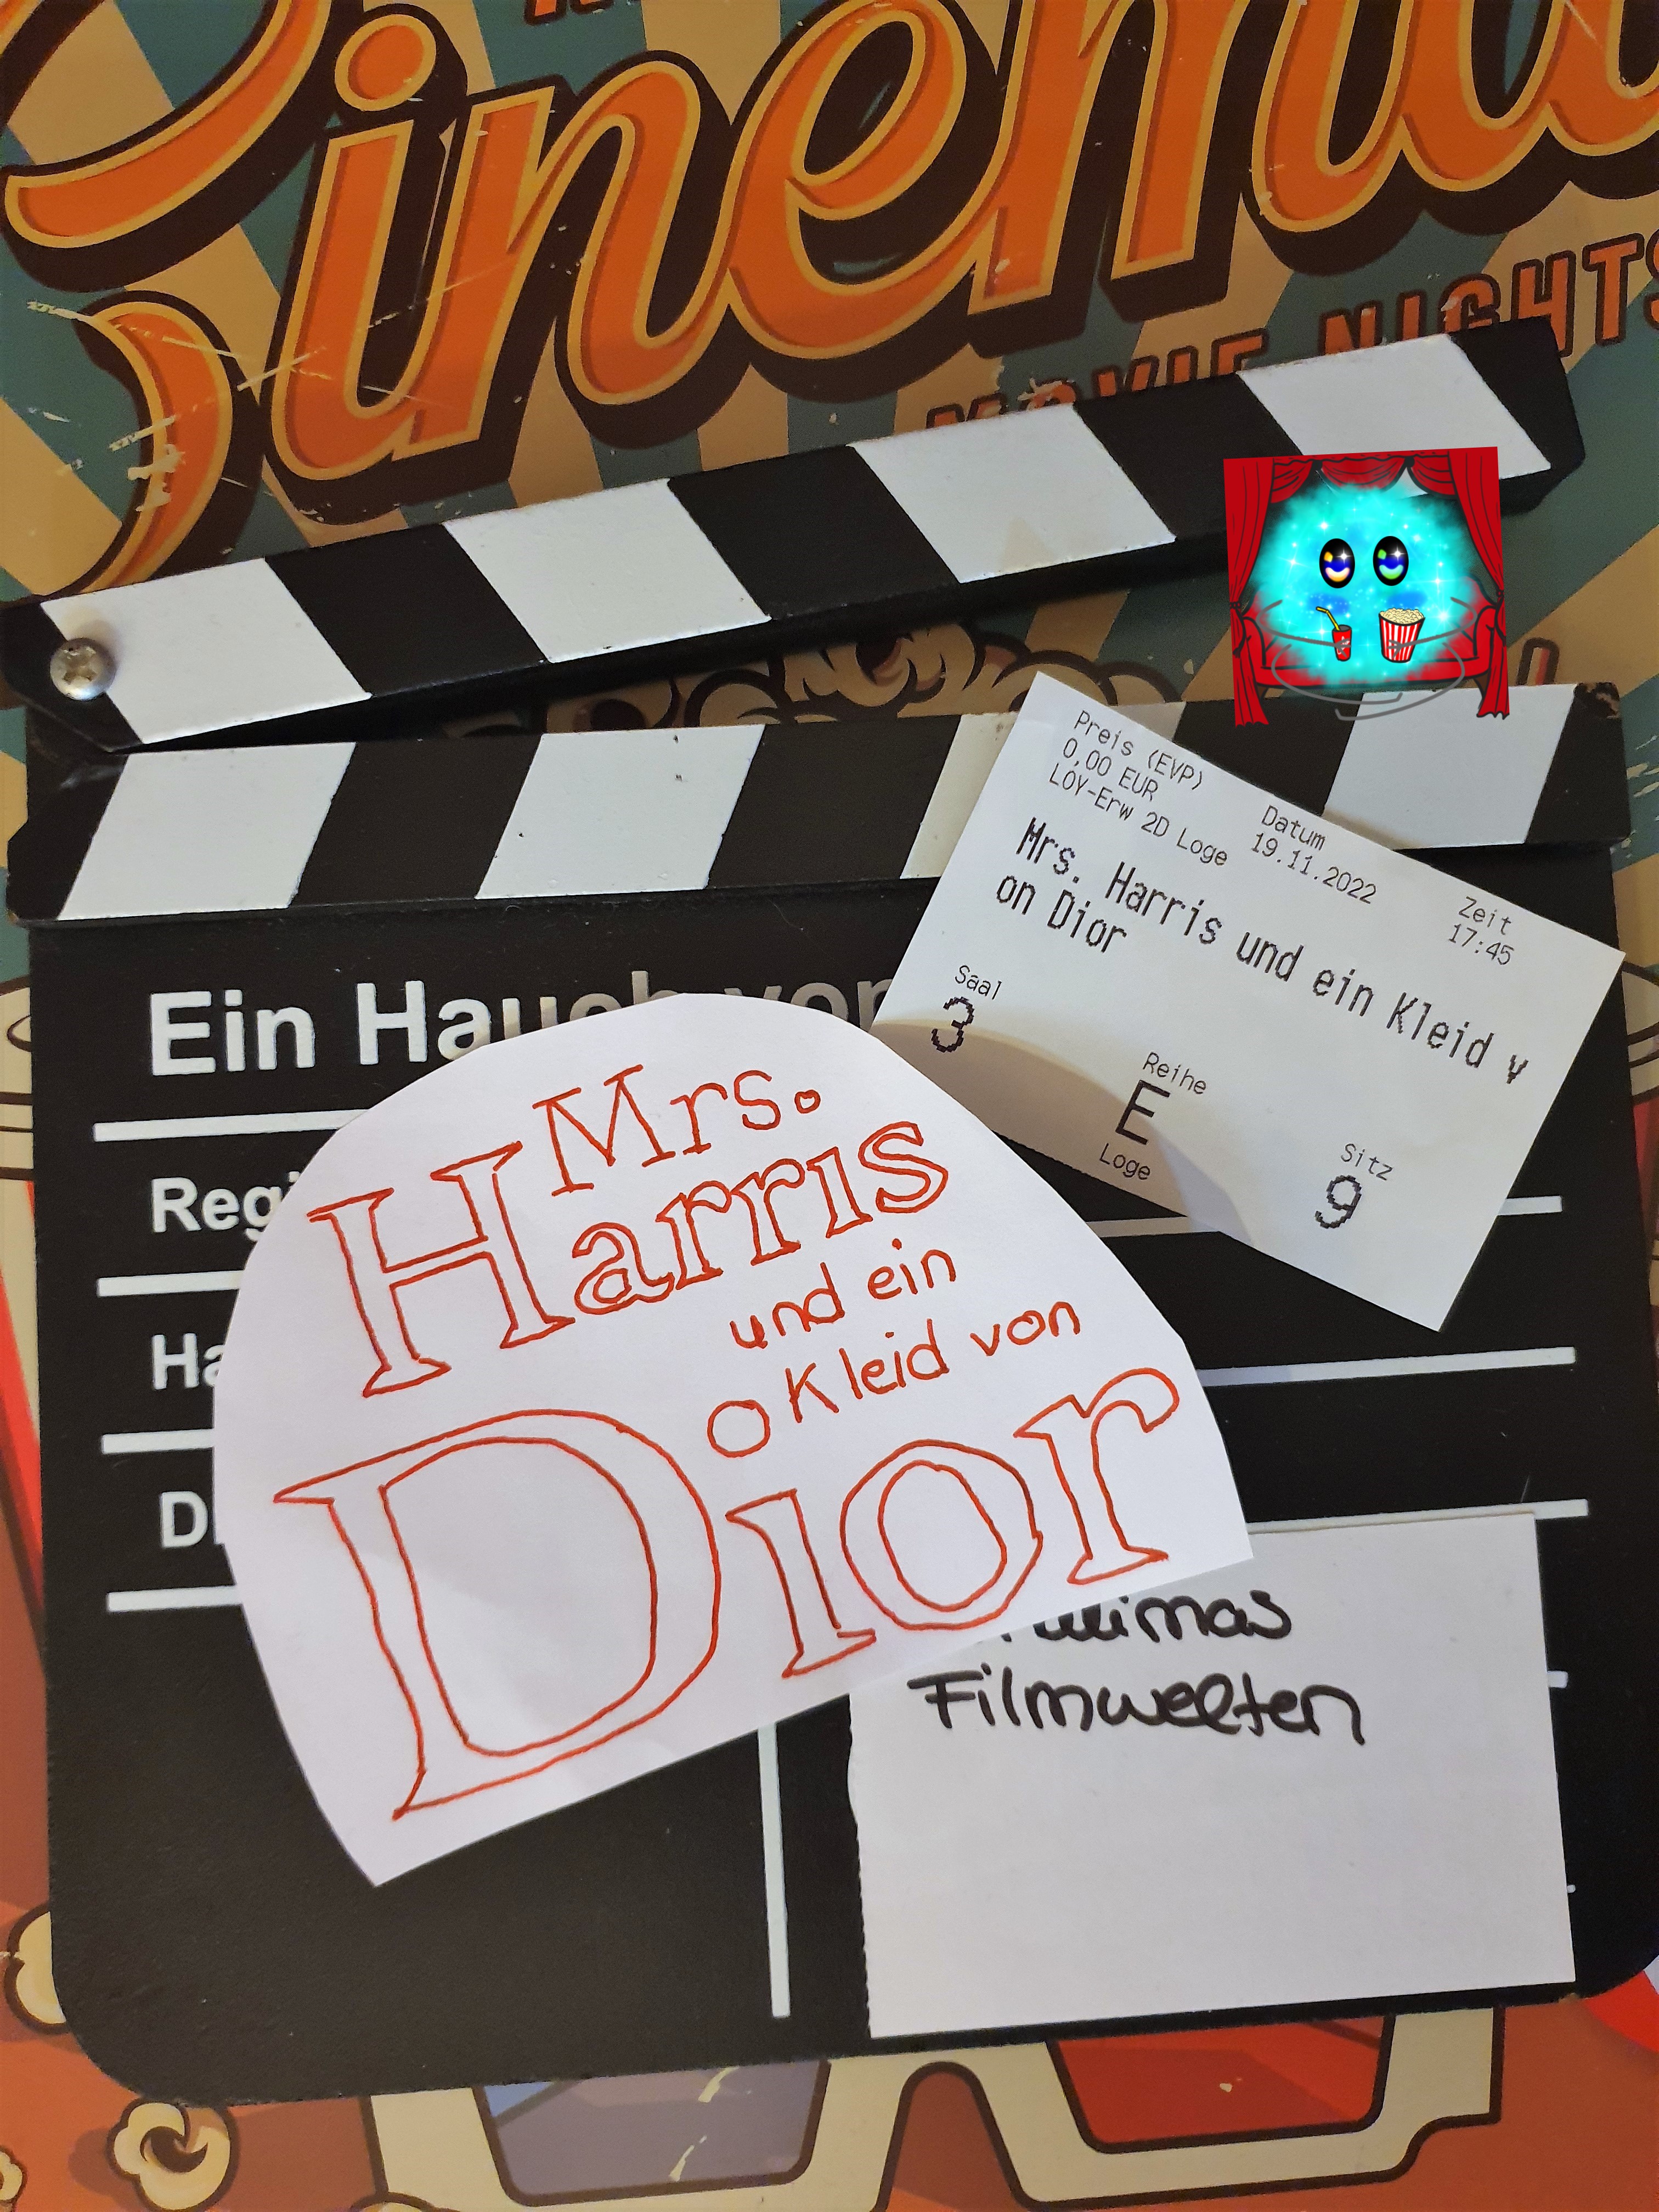 Cinema
MOVIE NIGHTS
Preis (EVP)
0,00 EUR
LOY-Erw 2D Loge
Datum
19.11.2022
Zeit
17:45
Mrs. Harris und ein Kleid v
on Dior
Saal
3
Reihe
E
Loge
Sitz
9
Ein Hauch von
Mrs.
Harris
und ein
Kleid von
Dior
Filmwelten